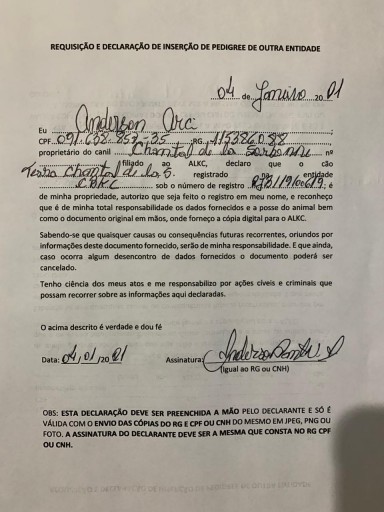 REQUISIÇÃO E DECLARAÇÃO DE INSERÇÃO DE PEDIGREE DE OUTRA ENTIDADE
04 de Janeiro 20 21
Eu Anderson
CPF 091.638.853-35 RG 115386088
proprietário do canil Chantal de la Sorbonne nº
filiado ao ALKC, declaro que o cão
Chantal de la S. registrado entidade
CBKC sob o número de registro é
de minha propriedade, autorizo que seja feito o registro em meu nome, e reconheço
que é de minha total responsabilidade os dados fornecidos e a posse do animal bem
como o documento original em mãos, onde forneço a cópia digital para o ALKC.
Sabendo-se que quaisquer causas ou consequências futuras recorrentes, oriundos por
informações deste documento fornecido, serão de minha responsabilidade. E que ainda,
caso ocorra algum desencontro de dados fornecidos o documento poderá ser
cancelado.
Tenho ciência dos meus atos e me responsabilizo por ações cíveis e criminais que
possam recorrer sobre as informações aqui declaradas.
O acima descrito é verdade e dou fé
Data: 04/01/20 21 Assinatura:
(igual ao RG ou CNH)
OBS: ESTA DECLARAÇÃO DEVE SER PREENCHIDA A MÃO PELO DECLARANTE E SÓ É
VÁLIDA COM O ENVIO DAS CÓPIAS DO RG E CPF OU CNH DO MESMO EM JPEG, PNG OU
FOTO. A ASSINATURA DO DECLARANTE DEVE SER A MESMA QUE CONSTA NO RG CPF
OU CNH.